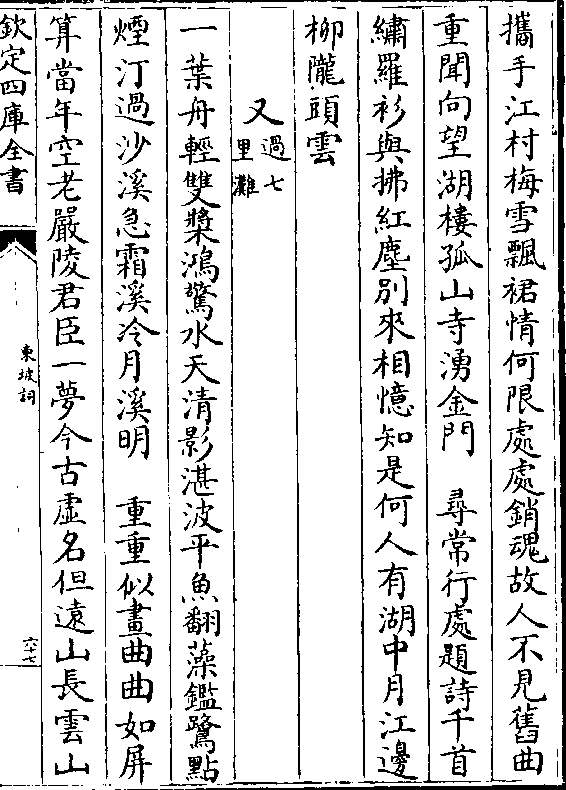 攜手江村梅雪飄裙情何限處處銷魂故人不見舊曲
重聞向望湖樓孤山寺湧金門　尋常行處題詩千首
繡羅衫與拂紅塵別來相憶知是何人有湖中月江邊
柳隴頭雲
又過七里灘
一葉舟輕雙槳鴻驚水天清影湛波平魚翻藻鑑鷺點
煙汀過沙溪急霜溪冷月溪明　重重似畫曲曲如屏
算當年空老嚴陵君臣一夢今古虛名但遠山長雲山
欽定四庫全書
東坡詞
六十七